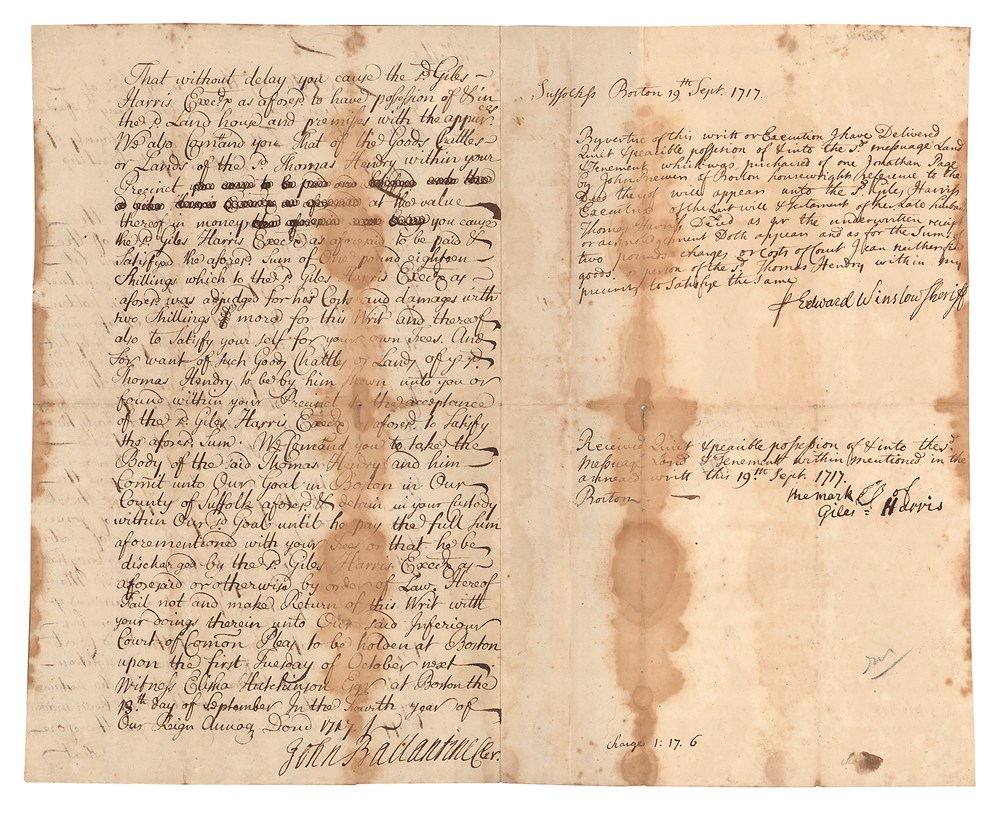 That without delay you cause the sd. Giles
Harris Execx as aforesd. to have possession of & in
the sd. Land house and premisses with the appurces.
We also Comand you That of the Goods Cattles
or Lands of the sd. Thomas Hendry within your
Precinct
at the value
thereof in money you cause
the sd. Giles Harris Execx as aforesaid to be paid &
Satisfyed the aforesd. Sum of One pound eighteen
Shillings which to the sd. Giles Harris Execx as
aforesd. was adjudged for her Costs and damages with
two Shillings more for this Writ and thereof
also to Satisfy your self for your own Fees. And
for want of such Goods Chattles or Lands of ye sd.
Thomas Hendry to be by him shown unto you or
found within your Precinct to the acceptance
of the sd. Giles Harris Execx aforesd. to Satisfy
the aforesd. Sum. We Comand you to take the
Body of the said Thomas Hendry and him
Comit unto Our Goal in Boston in Our
County of Suffolk aforesd. & detain in your custody
within Our sd. Goal until he pay the full Sum
aforementioned with your Fees or that he be
discharged by the sd. Giles Harris Execx as
aforesaid or otherwise by order of Law. Hereof
Fail not and make Return of this Writ with
your doings therein unto Our said Inferiour
Court of Comon Pleas to be holden at Boston
upon the first Tuesday of October next
Witness Elisha Hutchinson Esqr at Boston the
13th day of September In the Fourth year of
Our Reign Annoq Domi 1717
John Ballantine Cler.
Suffolk ss Boston 19th Sept. 1717.
By vertue of this writt or Execution I have Deliverd
Quiet & peaible possesion of & into the sd. messuage Land
& Tenement which was purchased of one Jonathan Page
by John Brewer of Boston housewright reference to the
Deed thereof will appear unto the sd. Giles Harriss
Executrix of the Last will & testament of the Late husband
Thomas Harriss Decd as pr the underwritten receipt
or acknowledgment Doth appear and as for the Sum of
two pounds charges or Costs of Court I can neither find
goods or person of the sd. Thomas Hendry within my
precinct to Satisfye the Same
Edward Winslow Sheriff
Received Quiet & peaible possesion of & into the sd.
Messuage Land & Tenement within mentioned in the
annexed writt this 19th Sept. 1717.
Boston.
the mark of
Giles Harris
Charge 1: 17. 6